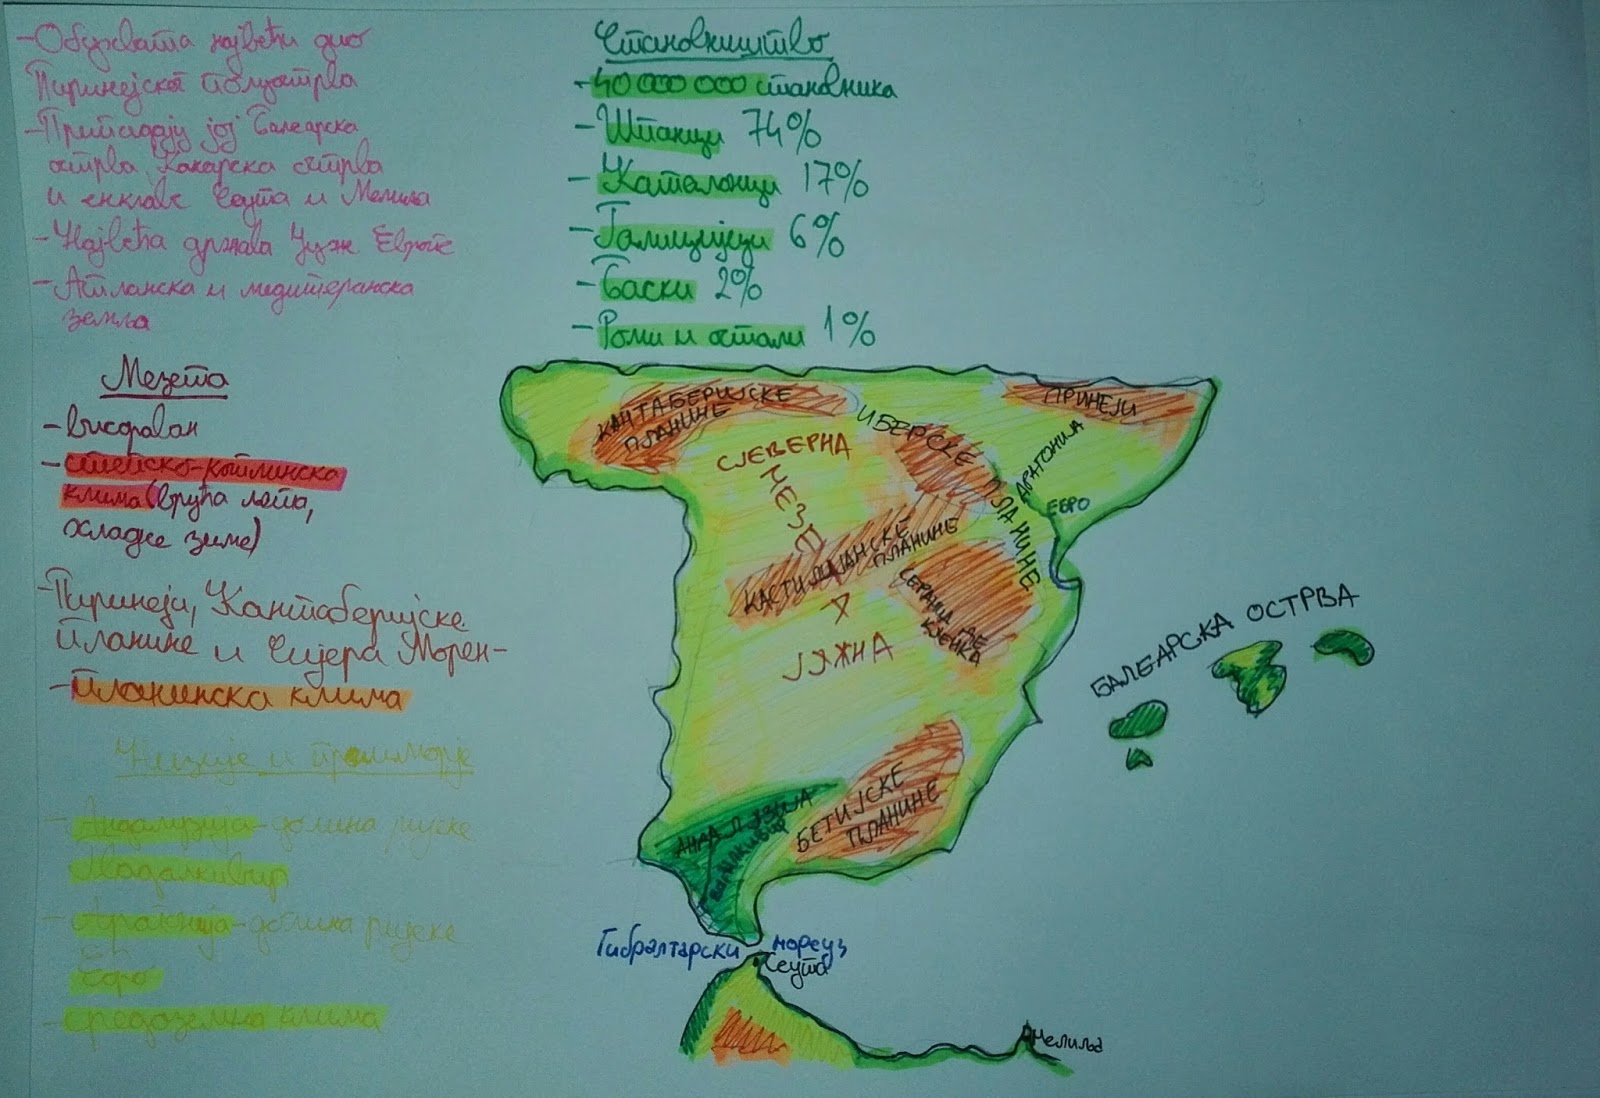 -Обухвата највећи дио
Пиринејског полуострва
-Припадају јој Балеарска
острва, Канарска острва
и енклаве Сеута и Мелиља
-Највећа држава Јужне Европе
-Атланска и медитеранска
земља
Мезета
-висораван
-степско-котлинска
клима (врућа љета,
хладне зиме)
-Пиринеји, Кантаберијске
планине и Сијера Морен-
-планинска клима
Низије и приморје
-Андалузија-долина ријеке
Гвадалкивир
-Арагонија-долина ријеке
Ебро
-средоземна клима
Становништво
-40 000 000 становника
-Шпанци 74%
-Каталонци 17%
-Галицијци 6%
-Баски 2%
-Роми и остали 1%
КАНТАБЕРИЈСКЕ
ПЛАНИНЕ
ПИРИНЕЈИ
ИБЕРСКЕ ПЛАНИНЕ
АРАГОНИЈА
ЕБРО
СЈЕВЕРНА
МЕЗЕТА
ЈУЖНА
КАСТИЉАНСКЕ
ПЛАНИНЕ
СЕРАНИЈА ДЕ
КУЕНКА
БАЛЕАРСКА ОСТРВА
АНДАЛУЗИЈА
ГВАДАЛКИВИР
БЕТИЈСКЕ
ПЛАНИНЕ
Гибралтарски мореуз
Сеута
Мелиља